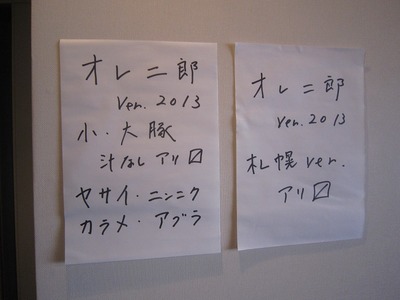 オレ二郎
ver.2013
小・大豚
汁なし アリ〼
ヤサイ・ニンニク
カラメ・アブラ
オレ二郎
ver.2013
札幌ver.
アリ〼